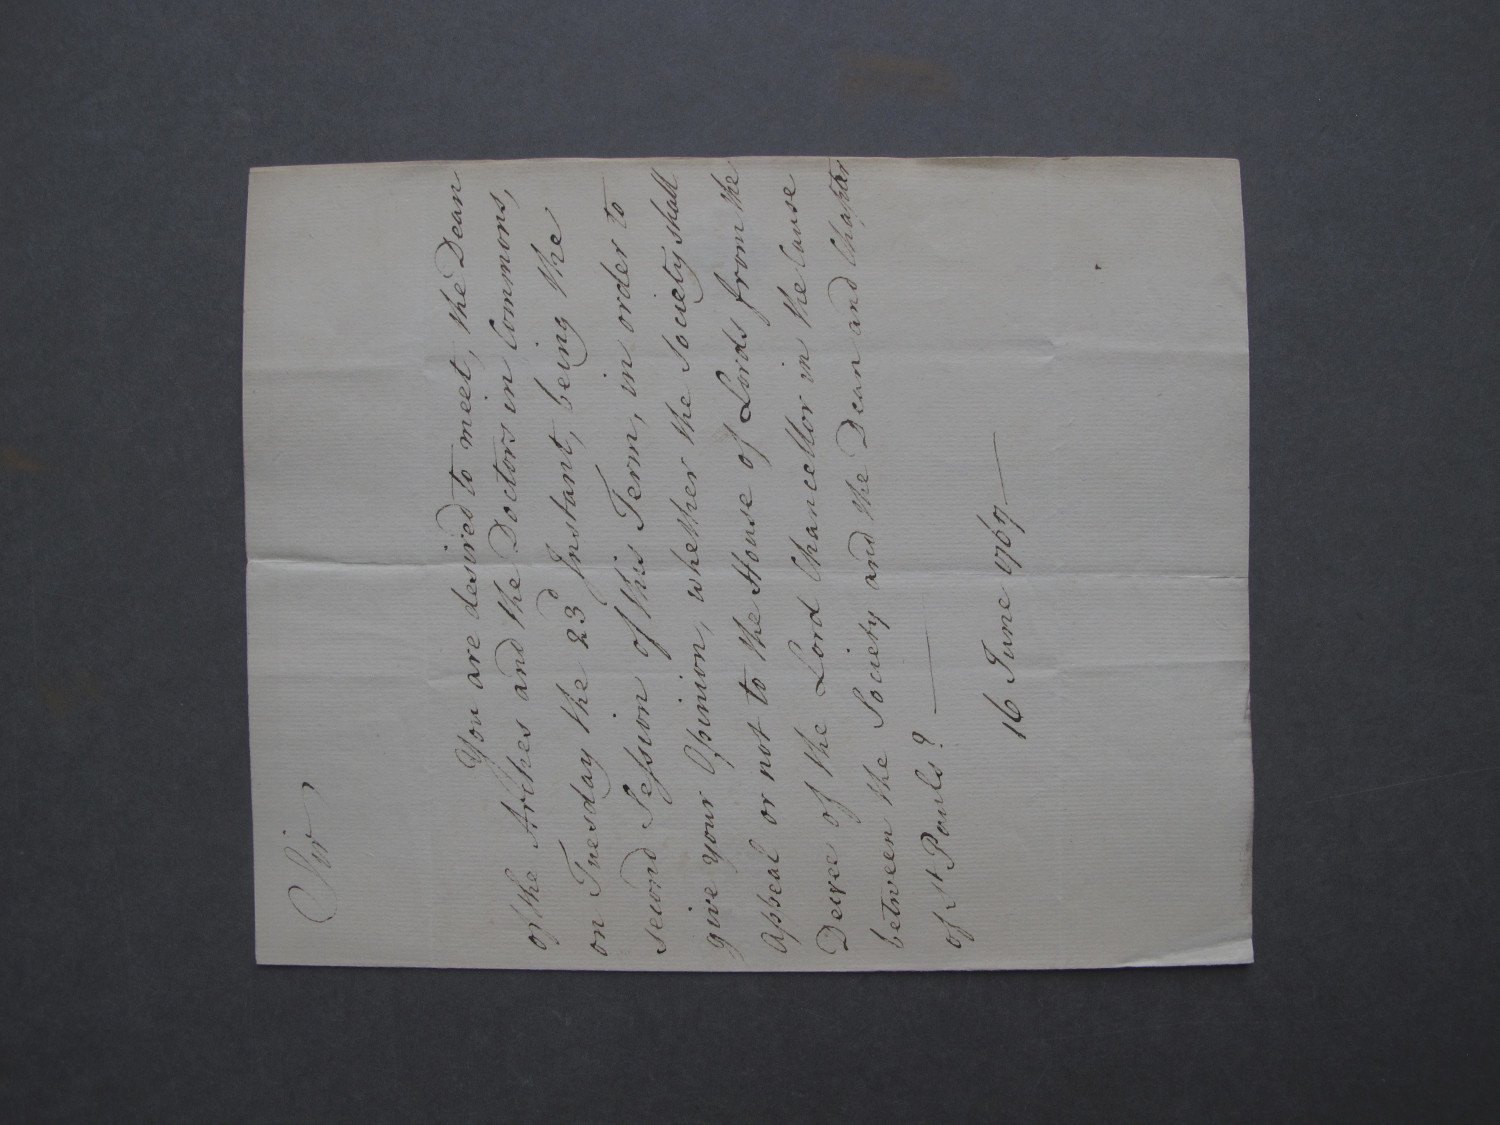 Sir
You are desired to meet, the Dean
of the Arches and the Doctors in Commons,
on Tuesday the 23d Instant, being the
second Session of this Term, in order to
give your Opinion, whether the Society shall
Appeal or not to the House of Lords from the
Decree of the Lord Chancellor in the Cause
between the Society and the Dean and Chapter
of St Pauls?
16 June 1767